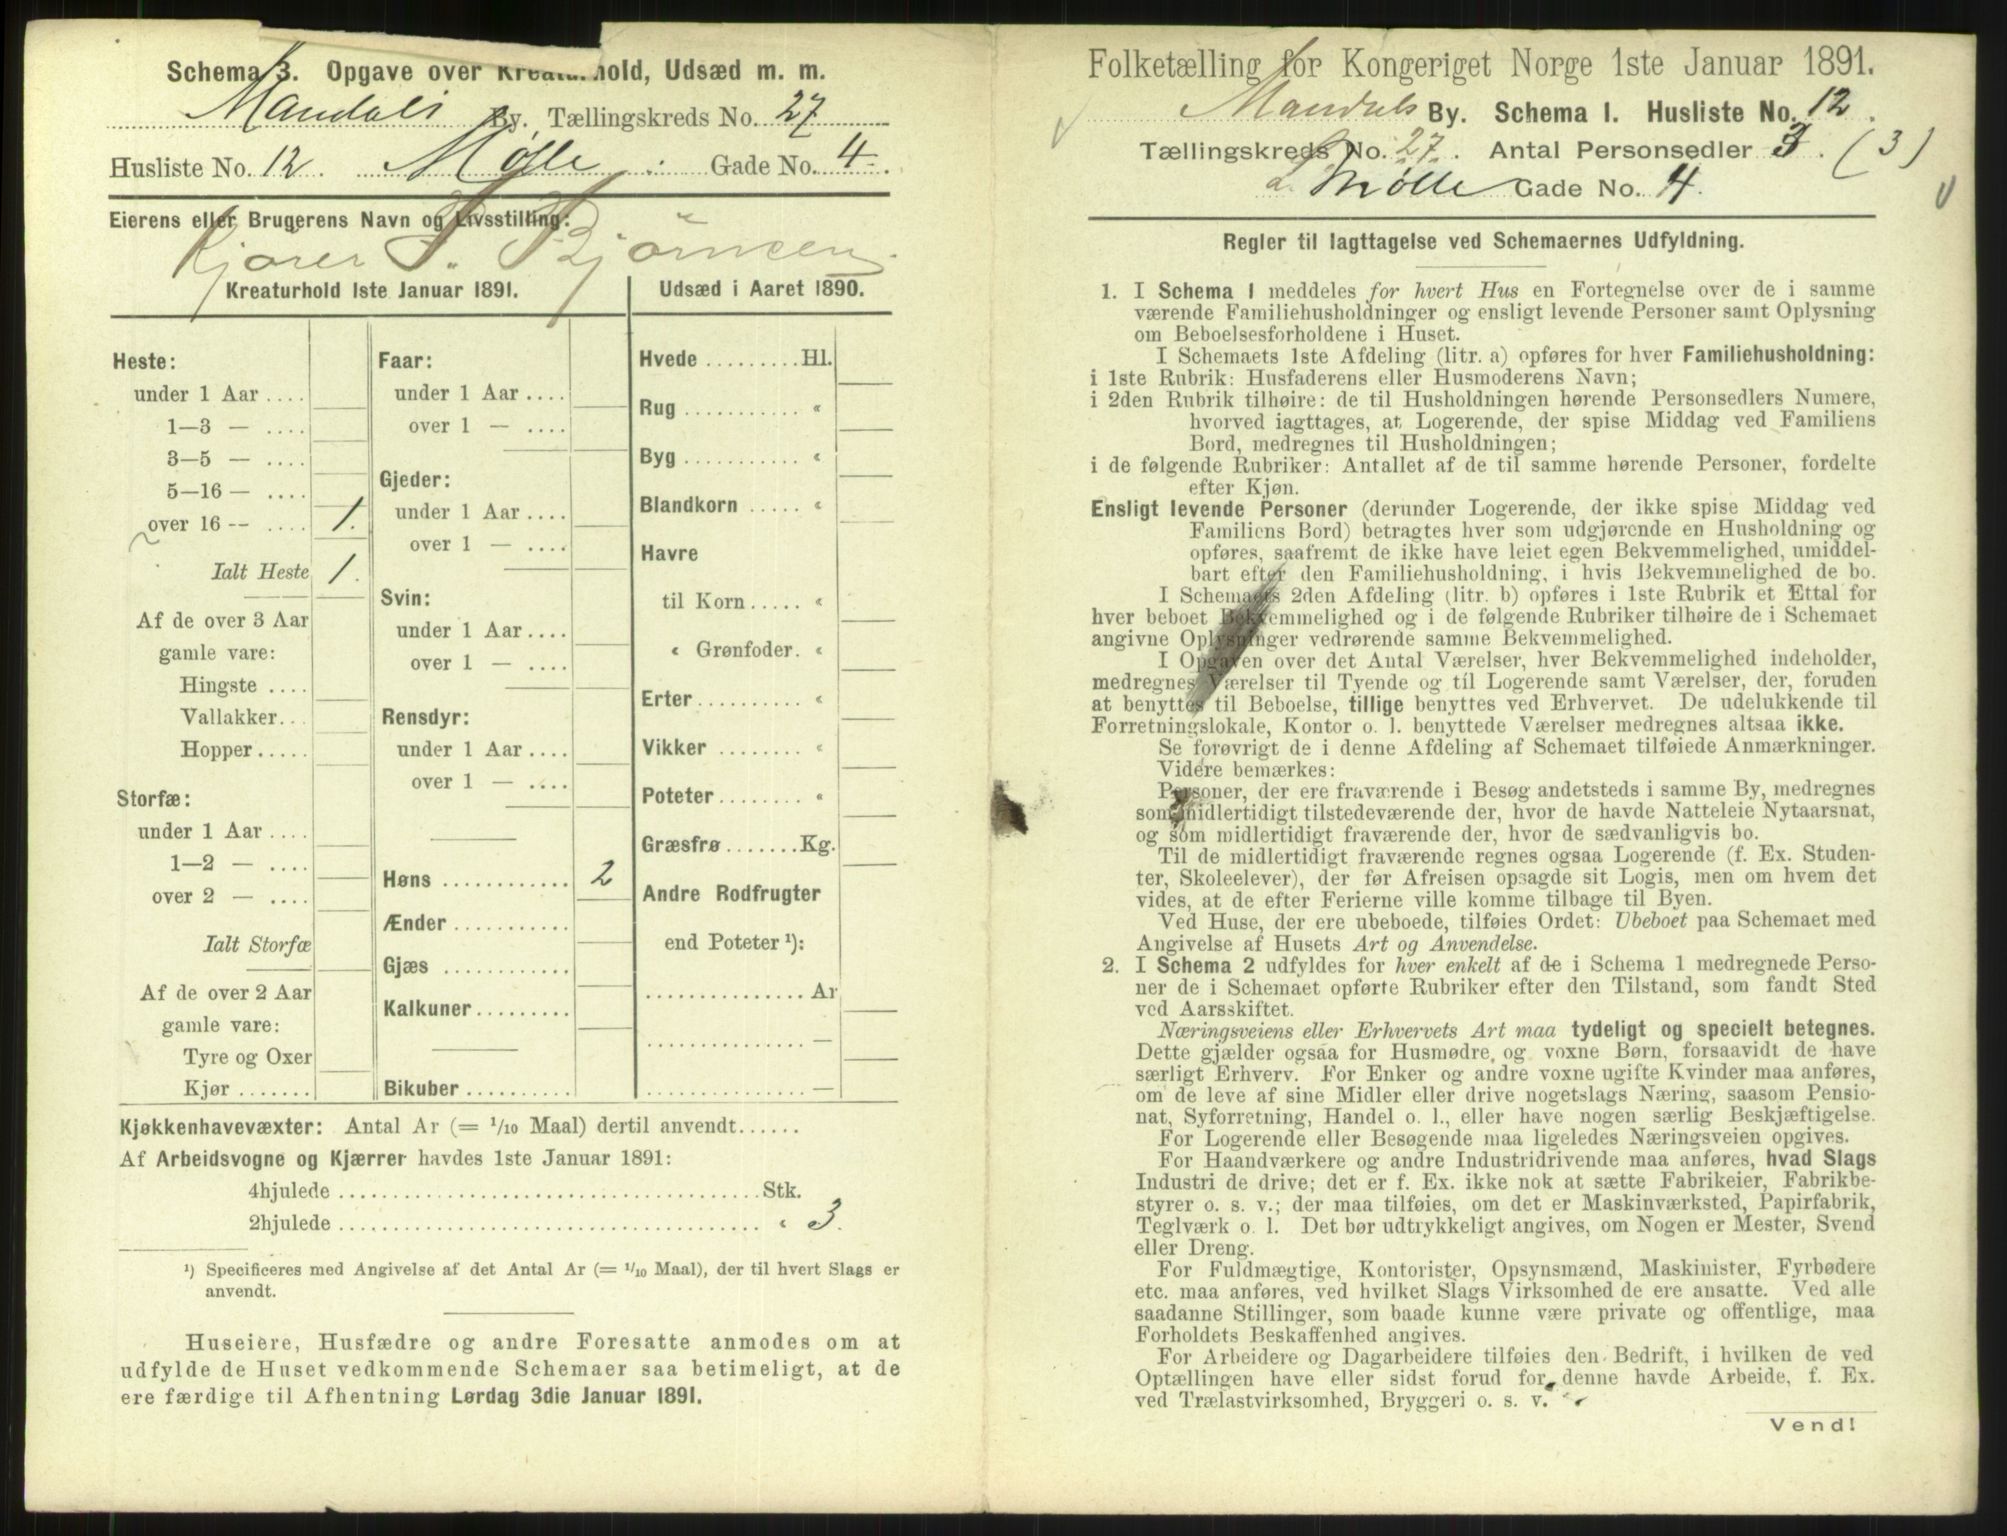 Schema 3. Opgave over Kreaturhold, Udsæd m. m.
Mandals By. Tællingskreds No. 27
Husliste No. 12. Mølle Gade No. 4.
Eierens eller Brugerens Navn og Livsstilling:
Kjører P. Bjørnsen
Kreaturhold 1ste Januar 1891.
Heste:
under 1 Aar ....
1—3 — ....
3—5 — ....
5—16 — ....
over 16 -- .... 1.
Ialt Heste 1.
Af de over 3 Aar
gamle vare:
Hingste ....
Vallakker...
Hopper .....
Storfæ:
under 1 Aar ....
1—2 — ....
over 2 — ....
Ialt Storfæ
Af de over 2 Aar
gamle vare:
Tyre og Oxer
Kjør .......
Faar:
under 1 Aar ....
over 1 — ....
Gjeder:
under 1 Aar ....
over 1 — ....
Svin:
under 1 Aar ....
over 1 — ....
Rensdyr:
under 1 Aar ....
over 1 — ....
Høns ............ 2
Ænder ...........
Gjæs ............
Kalkuner.........
Bikuber ..........
Udsæd i Aaret 1890.
Hvede ......... Hl.
Rug ........... «
Byg ........... «
Blandkorn ..... «
Havre
til Korn ..... «
« Grønfoder. «
Erter .......... «
Vikker ........ «
Poteter ........ «
Græsfrø ....... Kg.
Andre Rodfrugter
end Poteter ¹):
............... Ar
............... —
............... —
Kjøkkenhavevæxter: Antal Ar (= 1/10 Maal) dertil anvendt......
Af Arbeidsvogne og Kjærrer havdes 1ste Januar 1891:
4hjulede ........................................ Stk.
2hjulede ........................................ « 3.
¹) Specificeres med Angivelse af det Antal Ar (= 1/10 Maal), der til hvert Slags er
anvendt.
Huseiere, Husfædre og andre Foresatte anmodes om at
udfylde de Huset vedkommende Schemaer saa betimeligt, at de
ere færdige til Afhentning Lørdag 3die Januar 1891.
Folketælling for Kongeriget Norge 1ste Januar 1891.
Mandals By. Schema I. Husliste No. 12.
Tællingskreds No. 27. Antal Personsedler 3. (3)
L. Mølle Gade No. 4.
Regler til Iagttagelse ved Schemaernes Udfyldning.
1. I Schema 1 meddeles for hvert Hus en Fortegnelse over de i samme
værende Familiehusholdninger og ensligt levende Personer samt Oplysning
om Beboelsesforholdene i Huset.
I Schemaets 1ste Afdeling (litr. a) opføres for hver Familiehusholdning:
i 1ste Rubrik: Husfaderens eller Husmoderens Navn;
i 2den Rubrik tilhøire: de til Husholdningen hørende Personsedlers Numere,
hvorved iagttages, at Logerende, der spise Middag ved Familiens
Bord, medregnes til Husholdningen;
i de følgende Rubriker: Antallet af de til samme hørende Personer, fordelte
efter Kjøn.
Ensligt levende Personer (derunder Logerende, der ikke spise Middag ved
Familiens Bord) betragtes hver som udgjørende en Husholdning og
opføres, saafremt de ikke have leiet egen Bekvemmelighed, umiddel-
bart efter den Familiehusholdning, i hvis Bekvemmelighed de bo.
I Schemaets 2den Afdeling (litr. b) opføres i 1ste Rubrik et Ettal for
hver beboet Bekvemmelighed og i de følgende Rubriker tilhøire de i Schemaet
angivne Oplysninger vedrørende samme Bekvemmelighed.
I Opgaven over det Antal Værelser, hver Bekvemmelighed indeholder,
medregnes Værelser til Tyende og til Logerende samt Værelser, der, foruden
at benyttes til Beboelse, tillige benyttes ved Erhvervet. De udelukkende til
Forretningslokale, Kontor o. l. benyttede Værelser medregnes altsaa ikke.
Se forøvrigt de i denne Afdeling af Schemaet tilføiede Anmærkninger.
Videre bemærkes:
Personer, der ere fraværende i Besøg andetsteds i samme By, medregnes
som midlertidigt tilstedeværende der, hvor de havde Natteleie Nytaarsnat,
og som midlertidigt fraværende der, hvor de sædvanligvis bo.
Til de midlertidigt fraværende regnes ogsaa Logerende (f. Ex. Studen-
ter, Skoleelever), der før Afreisen opsagde sit Logis, men om hvem det
vides, at de efter Ferierne ville komme tilbage til Byen.
Ved Huse, der ere ubeboede, tilføies Ordet: Ubeboet paa Schemaet med
Angivelse af Husets Art og Anvendelse.
2. I Schema 2 udfyldes for hver enkelt af de i Schema 1 medregnede Perso-
ner de i Schemaet opførte Rubriker efter den Tilstand, som fandt Sted
ved Aarsskiftet.
Næringsveiens eller Erhvervets Art maa tydeligt og specielt betegnes.
Dette gjælder ogsaa for Husmødre og voxne Børn, forsaavidt de have
særligt Erhverv. For Enker og andre voxne ugifte Kvinder maa anføres,
om de leve af sine Midler eller drive nogetslags Næring, saasom Pensio-
nat, Syforretning, Handel o. l., eller have nogen særlig Beskjæftigelse.
For Logerende eller Besøgende maa ligeledes Næringsveien opgives.
For Haandværkere og andre Industridrivende maa anføres, hvad Slags
Industri de drive; det er f. Ex. ikke nok at sætte Fabrikeier, Fabrikbe-
styrer o. s. v.; der maa tilføies, om det er Maskinværksted, Papirfabrik,
Teglværk o. l. Det bør udtrykkeligt angives, om Nogen er Mester, Svend
eller Dreng.
For Fuldmægtige, Kontorister, Opsynsmænd, Maskinister, Fyrbødere
etc. maa anføres, ved hvilket Slags Virksomhed de ere ansatte. Ved alle
saadanne Stillinger, som baade kunne være private og offentlige, maa
Forholdets Beskaffenhed angives.
For Arbeidere og Dagarbeidere tilføies den Bedrift, i hvilken de ved
Optællingen have eller sidst forud for denne havde Arbeide, f. Ex.
ved Trælastvirksomhed, Bryggeri o. s. v.
Vend!